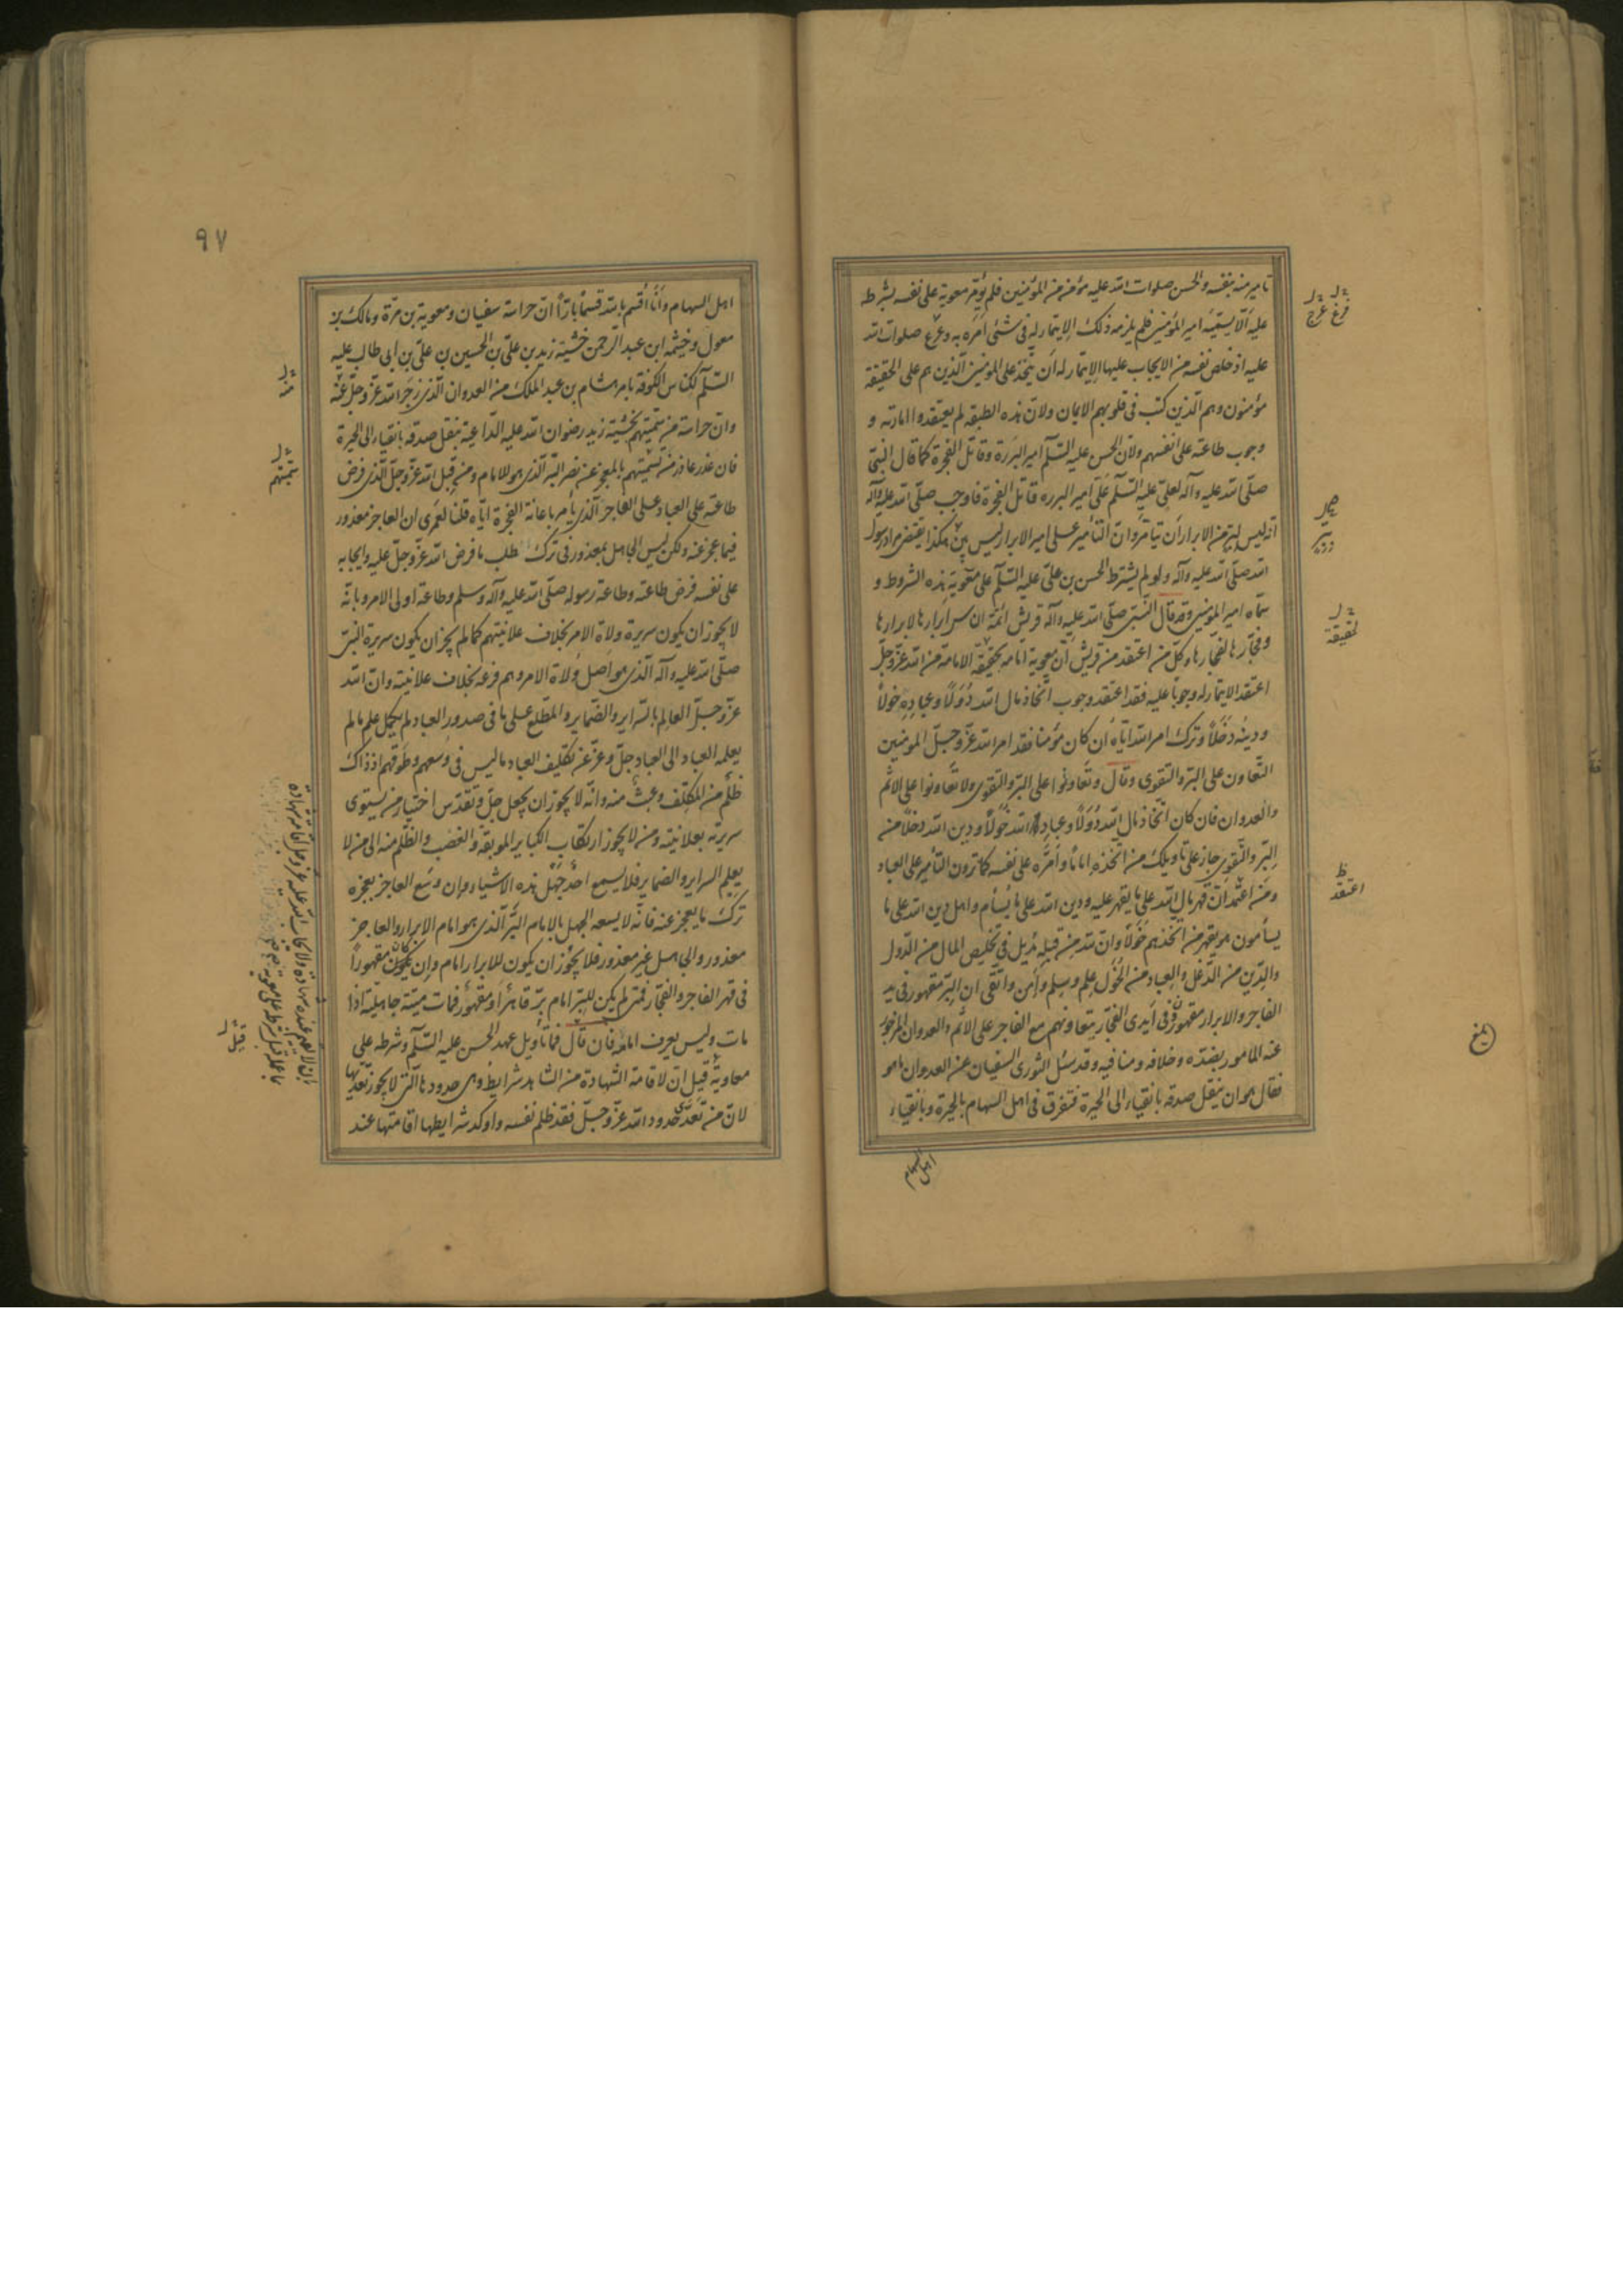 تامیر منه بنفسه والحسن صلوات الله علیه مؤمن من المؤمنین فلم یؤمر معویة علی نفسه بشرطه
علیه الا یسمیه امیر المؤمنین فلم یلزمه ذلک الایتمار له فی شئ امره به وفرغ صلوات الله
علیه اذ خلص نفسه من الایجاب علیها الایتمار له ان یتخذ علی المؤمنین الذین هم علی الحقیقة
مؤمنون وهم الذین کتب فی قلوبهم الایمان ولان هذه الطبقه لم یعتقدوا امارته و
وجوب طاعته علی انفسهم ولان الحسن علیه السلم امیر البررة وقاتل الفجرة کما قال النبی
صلی الله علیه وآله لعلی علیه السلم علی امیر البرره قاتل الفجرة فاوجب صلی الله علیه وآله
انه لیس لبر من الابرار ان یتامر وان التأمیر علی امیر الابرار لیس ببر هکذا یقتضی مراد رسول
الله صلی الله علیه وآله ولو لم یشترط الحسن بن علی علیه السلم علی معویة هذه الشروط و
سماه امیر المؤمنین وقد قال النبی صلی الله علیه وآله قریش ائمة الناس ابرارها لابرارها
وفجارها لفجارها وکل من اعتقد من قریش ان معویة امامه بحقیقة الامامة من الله عز وجل
اعتقد الایتمار له وجوبا علیه فقد اعتقد وجوب اتخاذ مال الله دولا وعباده خولا
ودینه دخلا وترک امر الله ایاه ان کان مؤمنا فقد امر الله عز وجل المؤمنین
التعاون علی البر والتقوی وقال وتعاونوا علی البر والتقوی ولا تعاونوا علی الاثم
والعدوان فان کان اتخاذ مال الله دولا وعباد الله خولا ودین الله دخلا من
البر والتقوی جاز علی تاویلک من اتخذه اماما وامره علی نفسه کما ترون التأمیر علی العباد
ومن اعتقد ان قهر مال الله علی ما یقهر علیه ودین الله علی ما یسأم واهل دین الله علی ما
یسأمون هو یقهر من اتخذهم خولا وان لله من قبله مدیل فی تخلیص المال من الدول
والدین من الدغل والعباد من الخول علم وسلم وآمن واتقی ان البر مقهور فی ید
الفاجر والابرار مقهورون فی ایدی الفجار بتعاونهم مع الفاجر علی الاثم والعدوان المزجور
عنه المامور بضده وخلافه ومنافیه وقد سئل الثوری السفیان عن العدوان ما هو
فقال هو ان ینقل صدقه بانقیاء الی الحیرة فتفرق فی اهل السهام بالحیرة وبانقیاء
اهل السهام
اهل السهام وانا اقسم بالله قسما بارا ان حراسة سفیان ومعویة بن مرة ومالک بن
معول وخیثمه ابن عبد الرحمن خشبة زید بن علی بن الحسین بن علی بن ابی طالب علیه
السلم لکناس الکوفة بامر هشام بن عبد الملک من العدوان الذی زجر الله عز وجل عنه
وان حراسة من سمیتهم بخشبة زید رضوان الله علیه الداعیة بنقل صدقه بانقیاء الی الحیرة
فان عذر عاذر من سمیتهم بالعجز عن نصر البر الذی هو الامام ومن قبل الله عز وجل الذی فرض
طاعته علی العباد علی الفاجر الذی یأمر باعانة الفجرة ایاه قلنا لعمری ان العاجز معذور
فیما عجز عنه ولکن لیس الجاهل بمعذور فی ترک الطلب ما فرض الله عز وجل علیه وایجابه
علی نفسه فرض طاعته وطاعة رسوله صلی الله علیه وآله وسلم وطاعة اولی الامر وبانه
لا یجوز ان یکون سریرة ولاة الامر بخلاف علانیتهم کما لم یجز ان یکون سریرة النبی
صلی الله علیه وآله الذی هو اصل ولاة الامر وهم فرعه بخلاف علانیته وان الله
عز وجل العالم بالسرایر والضمایر والمطلع علی ما فی صدور العباد لم یکل علم ما لم
یعلمه العباد الی العباد جل وعز عن تکلیف العباد ما لیس فی وسعهم وطوقهم اذ ذاک
ظلم من المکلف وعبث منه وانه لا یجوز ان یجعل جل وتقدس اختیار من یستوی
سریرته بعلانیته ومن لا یجوز ارتکاب الکبایر الموبقه والغصب والظلم منه الی من لا
یعلم السرایر والضمایر فلا یسع احد جهل هذه الاشیاء وان وسع العاجز بعجزه
ترک ما یعجز عنه فانه لا یسعه الجهل بالامام البر الذی هو امام الابرار والعاجز
معذور والجاهل غیر معذور فلا یجوز ان یکون للابرار امام وان کان مقهورا
فی قهر الفاجر والفجار فمتی لم یکن للبر امام بر قاهرا او مقهور فمات میتة جاهلیة اذا
مات ولیس یعرف امامه فان قال فما تأویل عهد الحسن علیه السلم وشرطه علی
معاویة قیل ان لاقامة الشهادة من الشاهد شرایط وهی حدودها التی لا یجوز تعدیها
لان من تعدی حدود الله عز وجل فقد ظلم نفسه واوکد شرایطها اقامتها عند
٩٧
لحقیقة
اعتقد
منه
سمیتهم
قبل